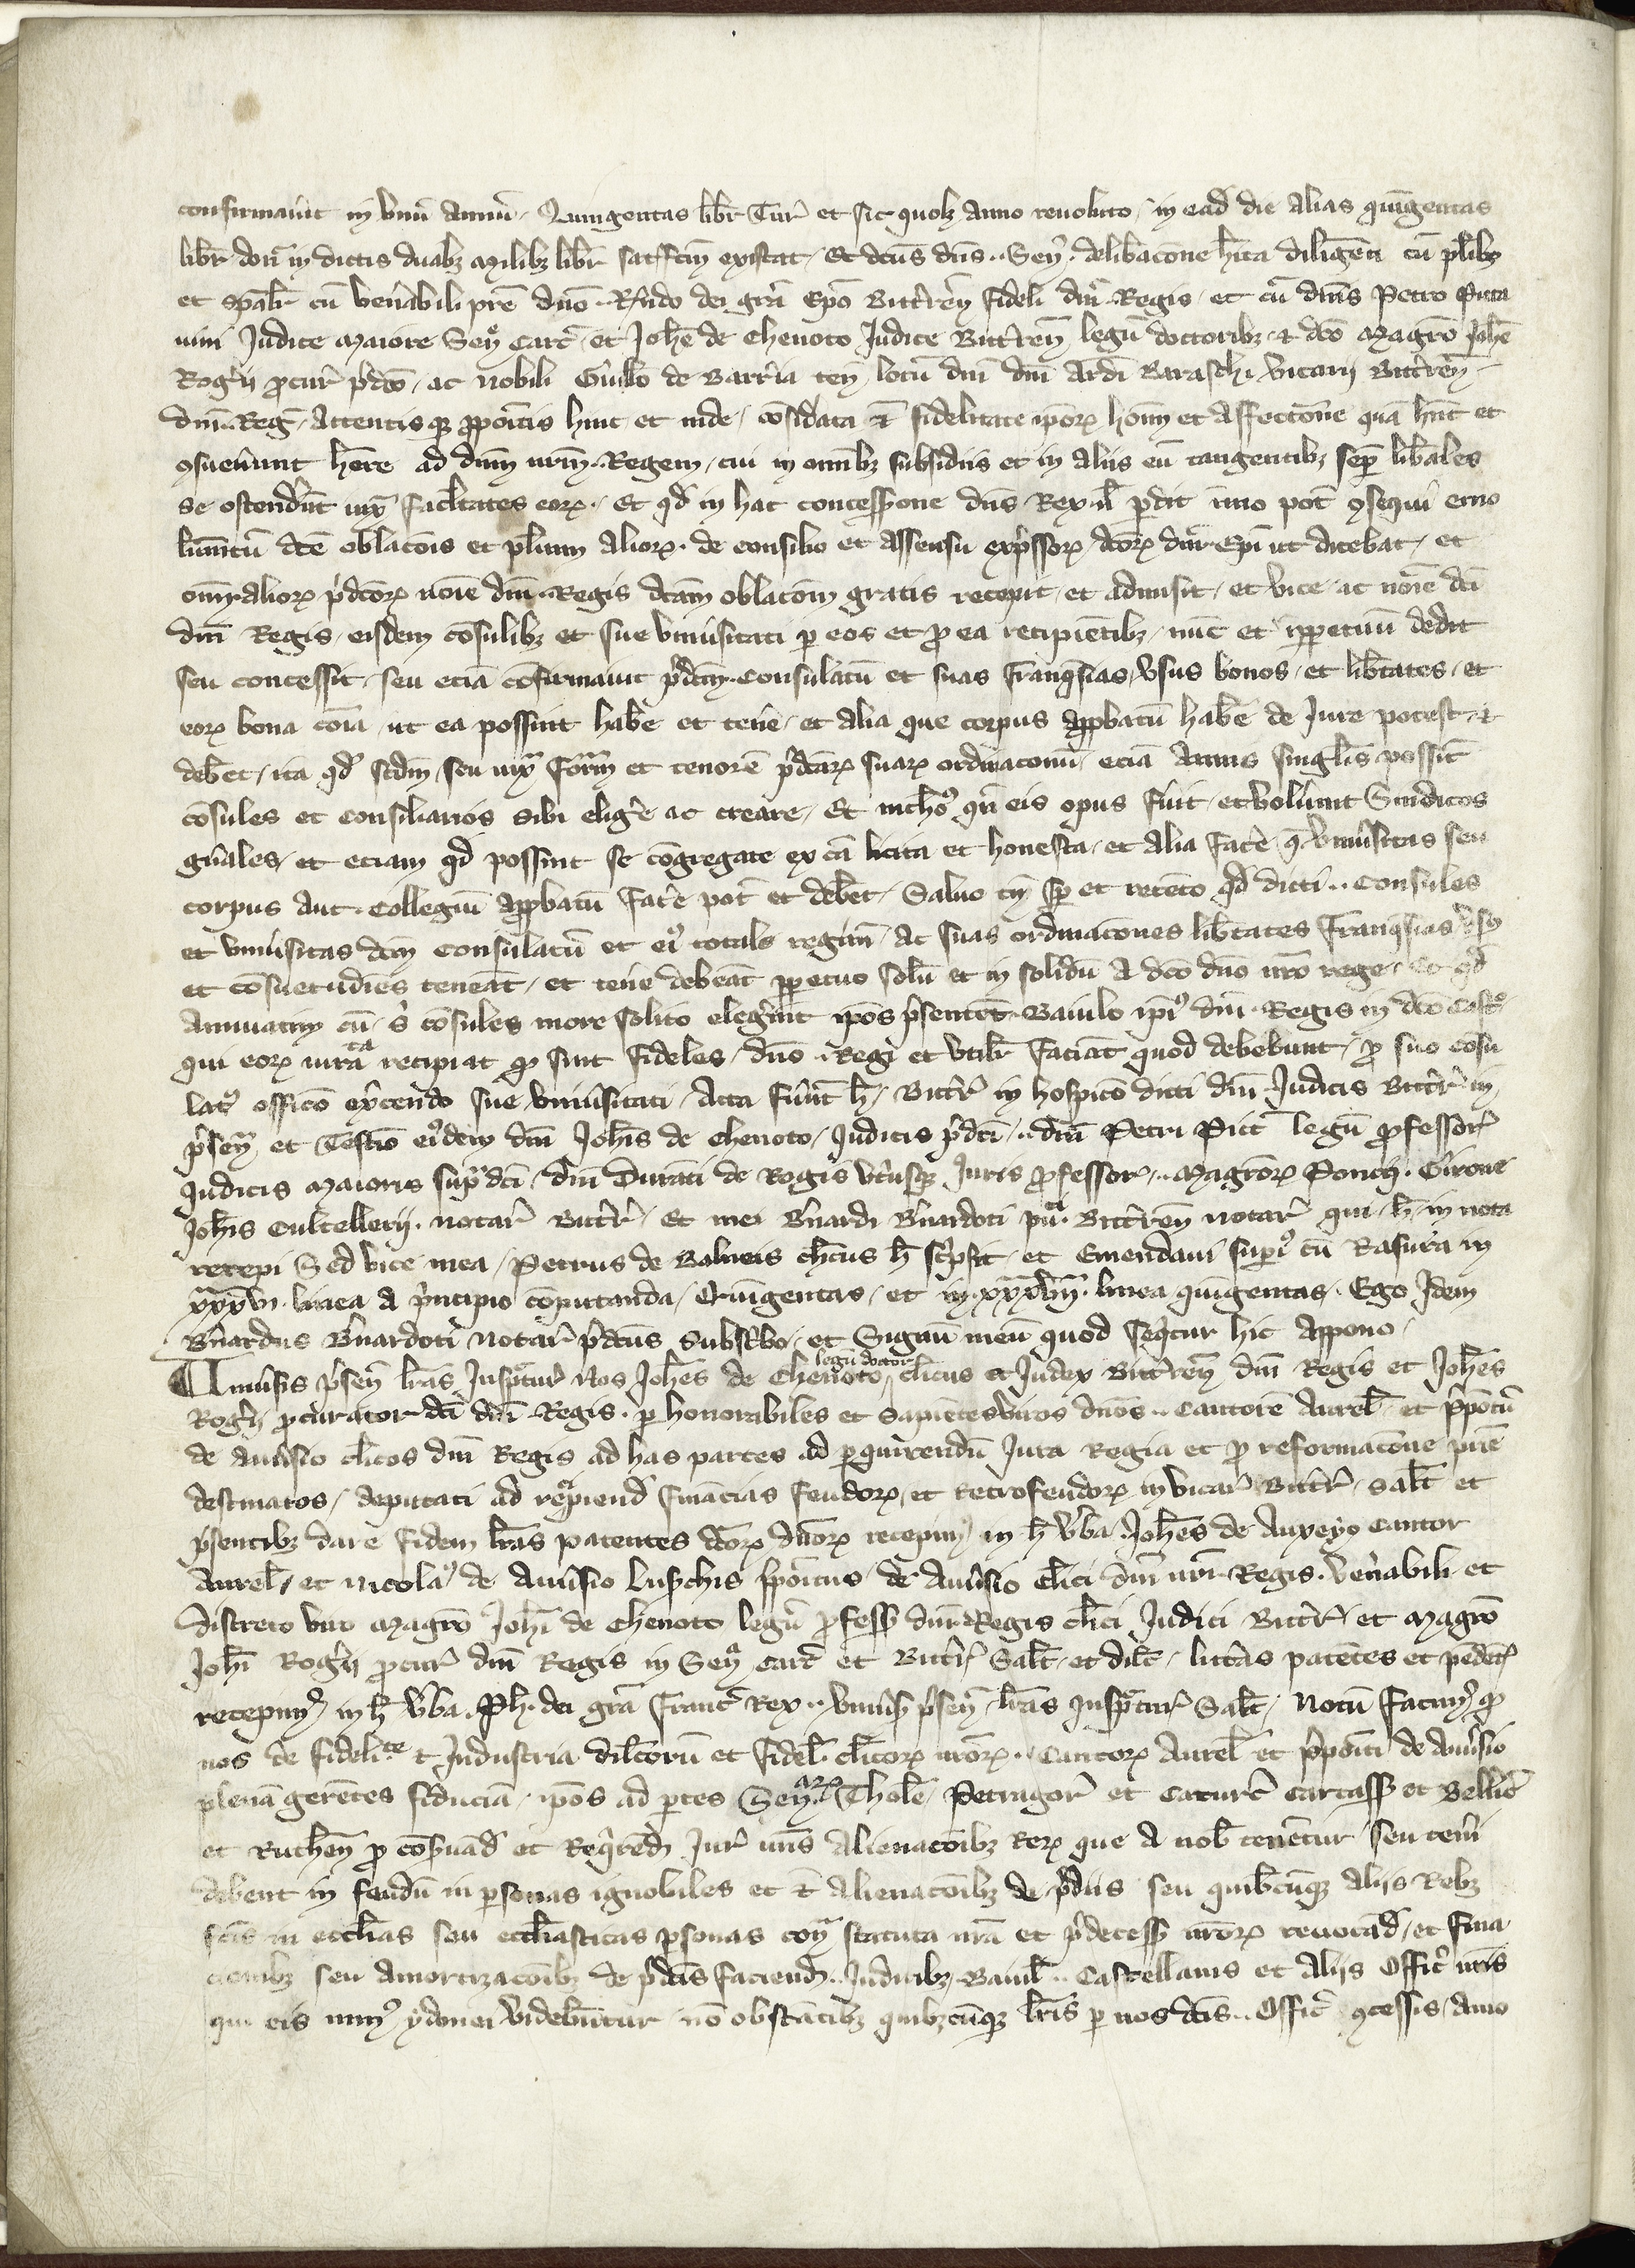 confirmavit in unū annū. Quingentas libr̄ Tur̄ et sic quolz anno revoluto, in ead̄ die alias quīgentas
libr̄ don̄ in dictis duabz milibz libr̄ satisfcm̄ existat. Et dcūs dn̄s .. Sen̄. delibācone hīta diligēti cū pluībz
et sp̄alr̄ cū ven̄abili pr̄e dn̄o .. Rn̄do dei grā Ep̄o Bittr̄en̄ fideli dn̄i .. Regis, et cū dn̄is Petro Pica
vini Judice maiore Sen̄ Carc̄ et Joh̄e de Chenoto Judice Bittr̄en̄ legū doctoribz & dc̄o Magr̄o Joh̄e
Roḡii p̄cur̄ p̄dc̄o, ac nobili Guill̄o de Barr̄ia ten̄ locū dn̄i dn̄i Ard̄i Baraschi vicarii Bittr̄en̄
dn̄i .. Reḡ. Attentis qz p̄poītis hinc et inde, cōsid̄ata & fidelitate ip̄orꝝ hoīm et affectōne quā hn̄t et
ꝯsuev̄unt hēre ad dn̄m nr̄m .. Regem, cui in omībz subsidiis et in aliis eū tangentibz semp̄ lib̄ales
se ostend̄ūt iux̄ facl̄tates eorꝝ. Et qd̄ in hac concessione dn̄s .. Rex nl̄ p̄dit imo pot̄ ꝯsequi emo
lumtū dc̄e oblacōis et pl̄ium aliorꝝ. de consilio et assensu exp̄ssorꝝ dc̄orꝝ dn̄i .. Ep̄i ut dicebat, et
om̄i aliorꝝ p̄dc̄orꝝ noīe dn̄i .. Regis dc̄am oblacōm gratis recepit, et admisit, et vice, ac noīe dc̄i
dn̄i Regis, eisdem cōsulibz et sue univ̄sitati p̄ eos et p̄ ea recipiētibz, nūc et īp̄petuū dedit
seu concessit, seu eciā cōfirmavit p̄dcm̄ .. consulatū et suas franq̄sias, usus bonos, et lib̄tates, et
eorꝝ bona cōia ut ea possint hab̄e et ten̄e, et alia que corpus app̄batū hab̄e de Jure potest, &
deb̄et, ita qd̄ scdm̄, seu iux̄ formā et tenorē p̄dc̄arꝝ suarꝝ ordinaconū, eciā annis singl̄is possit̄
cōsules et consiliarios sibi eliḡe ac creare, Et nichoꝰ qn̄ eis opus fūit, et volūint Sindicos
gn̄ales, et etiam qd̄ possint se cōgregare ex cā licita et honesta, et alia fac̄e q̄ univ̄sitas seu
corpus aut .. Collegiū app̄batū fac̄e pot̄ et deb̄et, Salvo tn̄ sp̄ et retēto qd̄ dicti .. Consules
et univ̄sitas dcm̄ Consulatū et eiꝰ totale regim̄, ac suas ordinacōnes lib̄tates franq̄sias usus
et cōsuetudīes teneāt, et ten̄e debeāt p̄petuo solū et in solidū a dc̄o dn̄o nr̄o rege. Et qd̄
annuatim cū .. s̄ cōsules more solito eleḡint ip̄os p̄sentēt .. Baiulo ip̄iꝰ dn̄i .. Regis in dc̄o Castrꝰ
qui eorꝝ iura recipiat qꝫ sint fideles, dn̄o .. Regi et utilr̄ faciāt quod debebunt, p̄ suo cōsu
latꝰ officō ex̄cendo sue univ̄sitati, Acta fūnt h̄. Bittr̄ in hospicō dicti dn̄i Judicis Bittr̄ in
p̄sen̄ et Testīo eiꝰdem dn̄i Joh̄is de Chenoto, Judicis p̄dc̄i, .. dn̄i Petri Pict̄ legū p̄fessor̄
Judicis maioris sup̄dc̄i, dn̄i Durāti de Rogis ut̄usqz Juris p̄fessorꝝ, .. magr̄orꝝ Poncii. Girone
Joh̄is Cultellerii. notar̄ Bittr̄, Et mei B̄nardi B̄nardoti pub̄ .. Bittr̄en̄ notar̄ qui, h̄, in nota
recepi Sed vice mea, Petrus de Balneis cl̄icus h̄ sc̄psit, et Emendavi sup̄iꝰ cū Rasura in
xxxvi. linea a p̄ncipio cōputanda, Q̄uīgentas, et in xxxviii. linea quīgentas. Ego Idem
B̄nardus B̄nardoti notar̄ p̄dc̄us subsc̄bo, et Signū meū quod seq̄tur hic appono.
Univ̄sis p̄sen̄ lr̄as Insp̄ctur̄ Nos Joh̄es de Chenoto legū doctor cl̄icus et Judex Bittr̄en̄ dn̄i Regis et Joh̄es
Roḡii p̄curator dc̄i dn̄i .. Regis. p̄ honorabiles et sapiētes viros dn̄os .. Cantorē Aurel̄. et p̄pōitū
de Auv̄sio cl̄icos dn̄i Regis ad has partes ad p̄quirendū Jura Regia et p̄ reformacōne pr̄ie
destinatos, deputati ad rec̄piend̄ finācias feudorꝝ, et Retrofeudorꝝ in vicar̄ Bittr̄. Salt̄ et
p̄sentibz dare fidem lr̄as patentes dc̄orꝝ dn̄orꝝ recepimꝰ in h̄ v̄ba. Joh̄es de Auxeyo Cantor
Aurel̄. et Nicolaꝰ de Auv̄sio Luschis p̄pōitus de Auv̄sio cl̄ici dn̄i nr̄i .. Regis. ven̄abili et
discreto viro Magr̄o Joh̄i de Chenoto legū p̄fess̄ dn̄i .. Regis cl̄ici Judici Bittr̄, et Magr̄o
Joh̄i Roḡii p̄cur̄ dn̄i Regis in Sen̄ Carc̄ et Bittr̄. Salt̄. et dil̄c, litt̄as patētes et pēdēt̄
recepimꝰ in h̄ v̄ba. Ph̄. dei gr̄a Franc̄ Rex .. univ̄s p̄sen̄ lr̄as insp̄ctur̄ Salt̄. Notū facimꝰ qꝫ
nos de fidelite & Industria dilc̄orū et fidel̄. cl̄icorꝝ nr̄orꝝ .. Cantorꝝ Aurel̄ et p̄pōiti de Auv̄sio
plenā gerētes fiduciā, ip̄os ad p̄tes Sen̄arꝝ Thole, Petragor̄ et Caturc̄ Carcass̄ et Bellic̄
et Ruthen̄ p̄ cōs̄uād̄ et Req̄rend̄ Jur̄ nr̄is Alienacōibz Rerꝝ que a nob̄ tenētur seu ten̄i
debent in feudū in p̄sonas ignobiles et & Alienacōibz de p̄diis seu quibc̄ūqz aliis Rebz
fc̄is in eccl̄ias seu eccl̄iasticas p̄sonas cont̄ statuta nr̄a et p̄decess̄ nr̄orꝝ revocād̄, et fina
cionibz seu amortizacōibz de p̄dc̄is faciend̄ .. Judicibz .. Baiul̄ .. Castellanis et aliis Offic̄ nr̄is
qui eis nimꝰ ydonei videbūtur nō obstātibz quibzcūqz lr̄is p̄ nos dc̄is .. Offic̄ ꝯcessis, amo